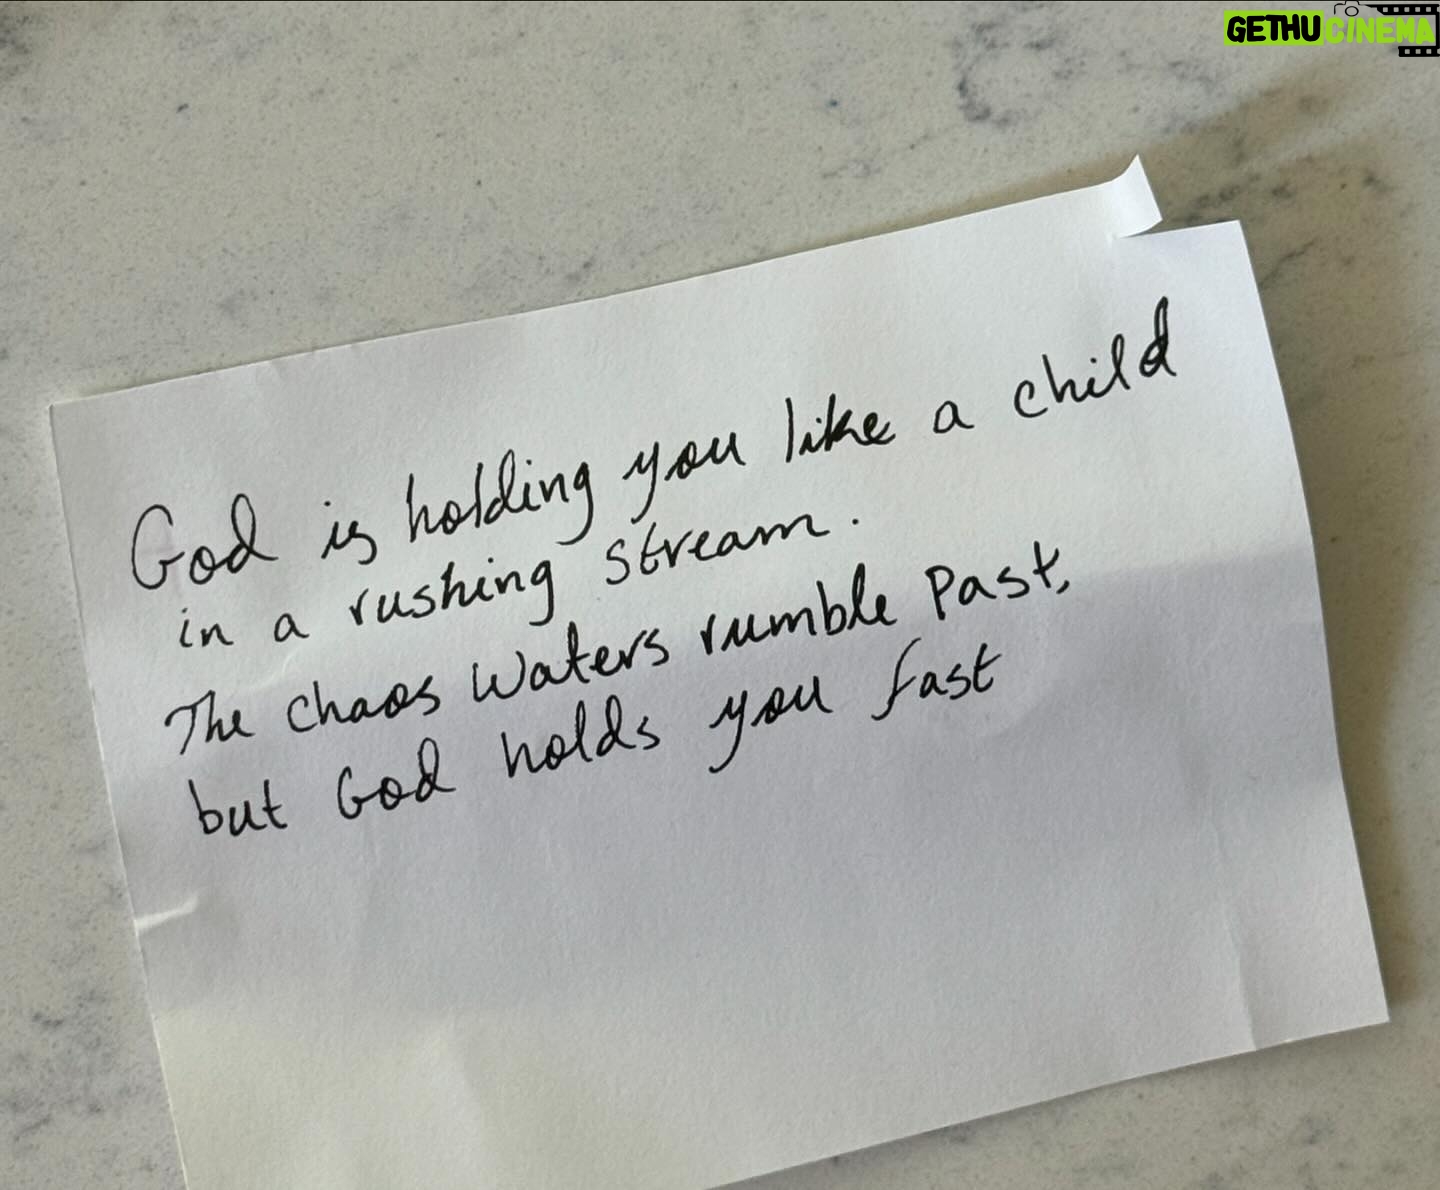 GETHU CINEMA
God is holding you like a child
in a rushing stream.
The chaos waters rumble past,
but God holds you fast